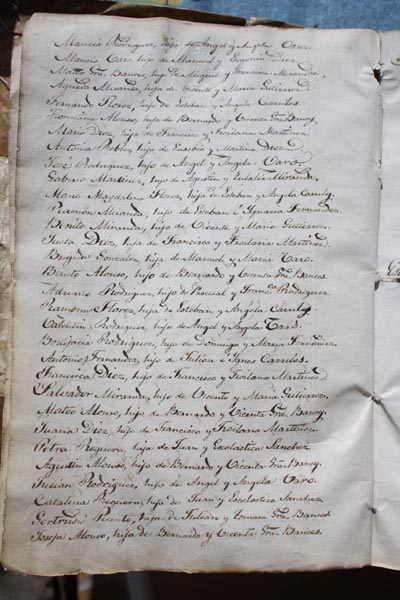 Mancia Rodriguez, hija de Angel y Angela Caro.
Mancio Caro, hijo de Manuel y Eugenia Diez
Matteo Grâ. Bances, hijo de Miguel y Francisca Miranda.
Agustin Miranda, hijo de Vicente y Maria Gutierrez
Fernando Florez, hijo de Esteban y Angela Canites.
Alonso, de Bernardo y Vicenta Grâ. Bances.
Maria Diez, hija de Francisco y Froilana Martinez.
Antonia Robles, hija de Eusebio y Martina Diez.
José Rodriguez, hijo de Angel y Angela Caro.
Gabino Martinez, hijo de Agustin y Eulalia Miranda.
Maria Magdalena Florez, hija de Esteban y Angela Canites.
Ramon Miranda, hijo de Esteban è Ignacia Fernandez.
Benito Miranda, hijo de Vicente y Maria Gutierrez.
Justa Diez, hija de Francisco y Froilana Martinez.
Brigida Gonzalez, hija de Manuel y Maria Caro.
Benito Alonso, hijo de Bernardo y Vicenta Grâ. Bances.
Rodriguez, hijo de Pascual y Franca. Rodriguez.
Ramona Florez, hija de Esteban y Angela Canites
Celestin Rodriguez, hijo de Angel y Angela Caro.
Bonifacia Rodriguez, hija de Domingo y Maria Fernandez.
Antonio Fernandez, hijo de Julian è Ignes Canites.
Francisca Diez, hija de Francisco y Froilana Martinez
Salvador Miranda, hijo de Vicente y Maria Gutierrez.
Mateo Alonso, hijo de Bernardo y Vicenta Grâ. Bances.
Juana Diez, hija de Francisco y Froilana Martinez.
Petra Reguera, hija de Juan y Escolastica Sanchez.
Agustin Alonso, hijo de Bernardo y Vicenta Grâ. Bances.
Julian Rodriguez, hijo de Angel y Angela Caro.
Catalina Reguera, hija de Juan y Escolastica Sanchez.
Gertrudis Puente, hija de Julian y Tomasa Grâ. Bances.
Josefa Alonso, hija de Bernardo y Vicenta Grâ. Bances.